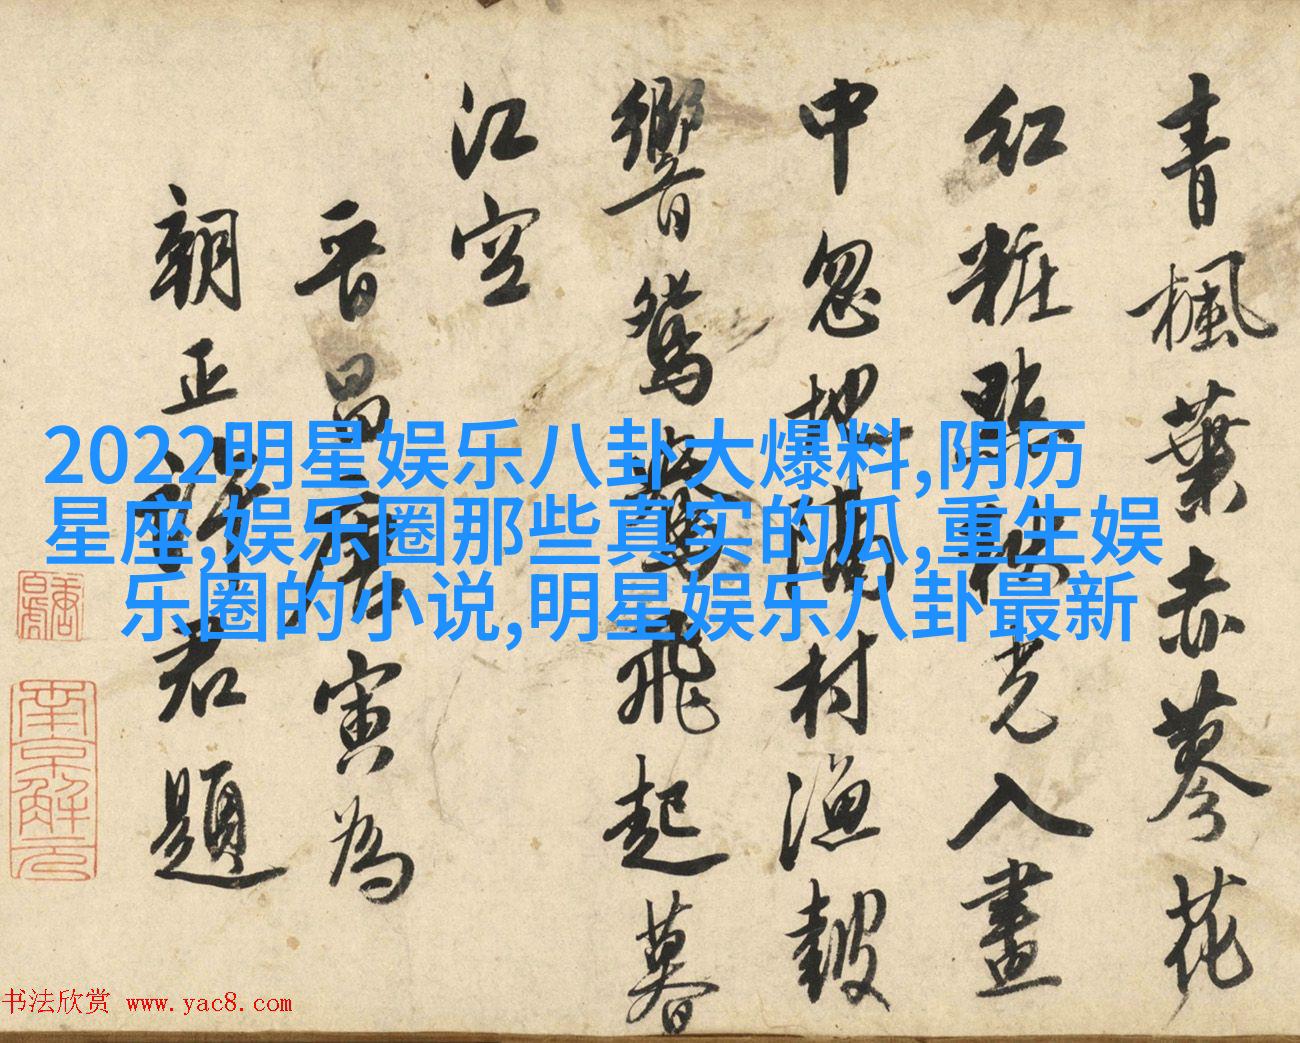 青楓葉赤蓼花
紅粧點秋光入畫
中忽地滿村漁皷
響鴛鴦飛起暮
江空
晉昌唐寅為
朝正君題
南京解元
2022明星娱乐八卦大爆料,阴历
星座,娱乐圈那些真实的瓜,重生娱
乐圈的小说,明星娱乐八卦最新
书法欣赏 www.yac8.com